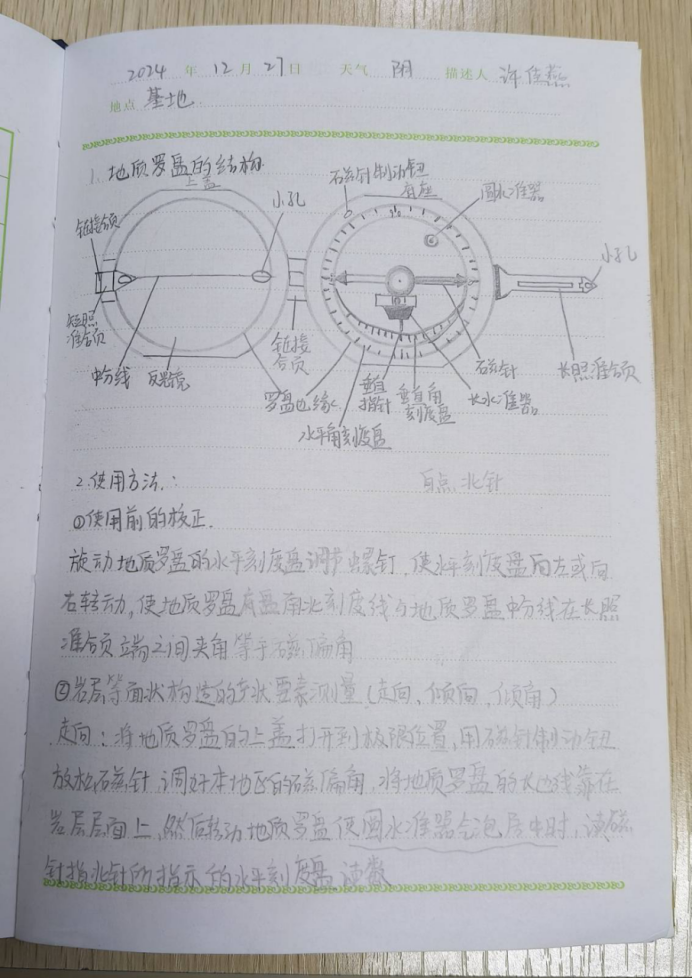 2024 年 12 月 27 日 天气 阴 描述人 许佳燕
地点 基地
1. 地质罗盘的结构
上盖
小孔
链接合页
短照准合页
中分线
反光镜
石磁针制动钮
底盘
圆水准器
小孔
罗盘边缘
链接合页
水平角刻度盘
垂直指针
垂直角刻度盘
长水准器
石磁针
长照准合页
2. 使用方法:
白点 北针
①使用前的校正.
旋动地质罗盘的水平刻度盘调节螺钉,使水平刻度盘向左或向
右转动,使地质罗盘底盘南北刻度线与地质罗盘中分线在长照
准合页立端之间夹角等于磁偏角
②岩层等面状构造的产状要素测量(走向、倾向、倾角)
走向:将地质罗盘的上盖打开到极限位置,用石磁针制动钮
放松石磁针,调好本地区的磁偏角,将地质罗盘的长边线靠在
岩层层面上,然后转动地质罗盘使圆水准器气泡居中时,读磁
针指北针所指示的水平刻度盘读数